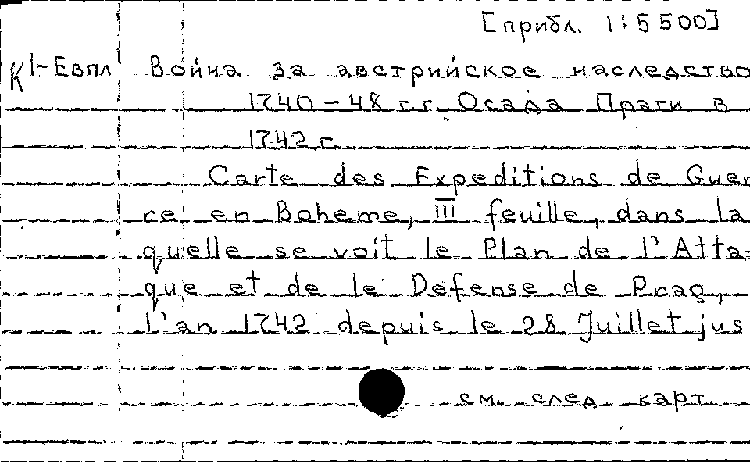 [прибл. 1:5 500]
К1-Евпл Война за австрийское наследство
1740-48 г.г. Осада Праги в
1742 г.
Carte des Expeditions de Guer
re en Boheme, III feuille, dans la
quelle se voit le Plan de l'Atta-
que et de le Defense de Prag,
l'an 1742 depuis le 28 Juillet jus
см. след карт